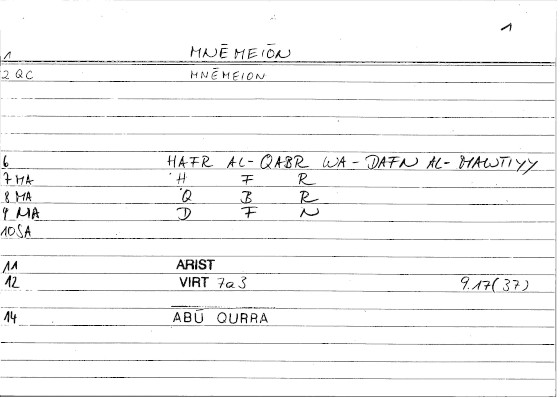 1
1 MNĒMEIŌN
2 QC MNĒMEION
6 HAFR AL-QABR WA-DAFN AL-MAWTIYY
7 MA Ḥ F R
8 MA Q B R
9 MA D F N
10 SA
11 ARIST
12 VIRT 7a3 9.17(37)
14 ABŪ QURRA